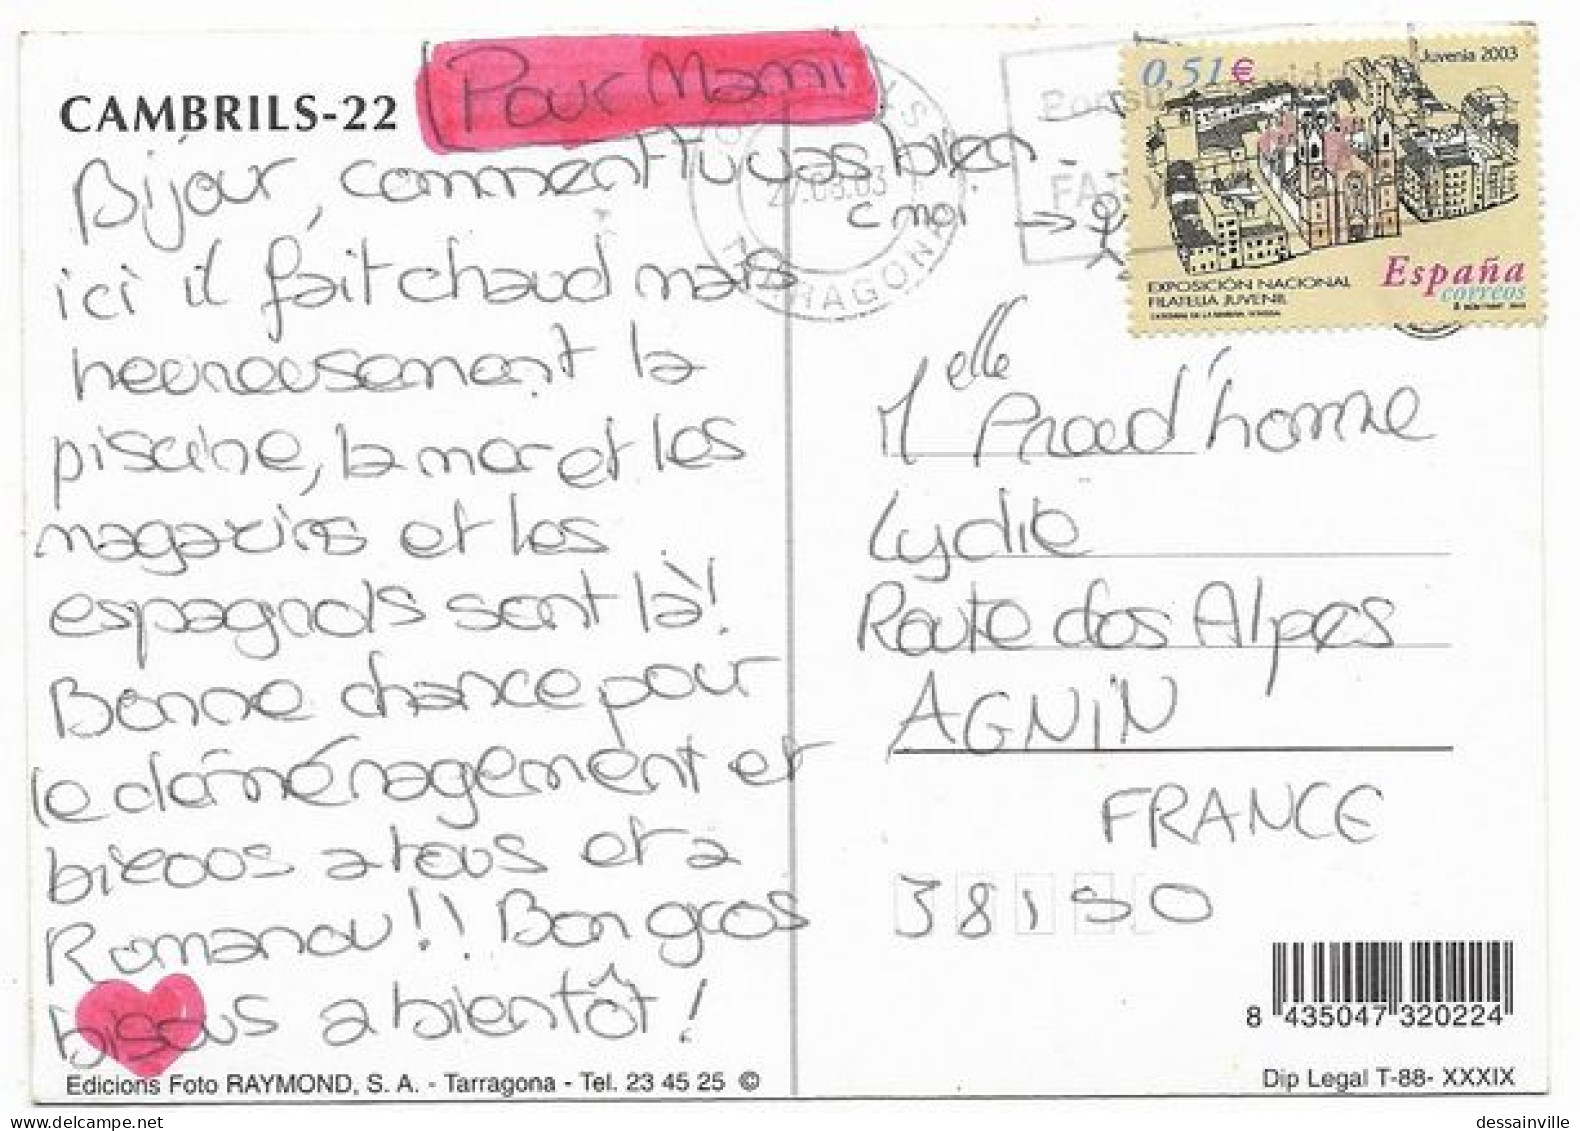 CAMBRILS-22
Pour Mami
Bijour, comment tu vas bien
c moi →
ici il fait chaud mais
heureusement la
piscine, la mer et les
magazins et les
espagnols sont là!
Bonne chance pour
le déménagement et
bizoos a tous et a
Romanou!! Bon gros
bisous a bientôt!
Edicions Foto RAYMOND, S. A. - Tarragona - Tel. 23 45 25 ©
TARRAGONA
0,51€
Juvenia 2003
EXPOSICIÓN NACIONAL
FILATELIA JUVENIL
España
correos
Melle Prud'homme
Lydie
Route des Alpes
AGNIN
FRANCE
38150
8 435047 320224
Dip Legal T-88- XXXIX
dessainville